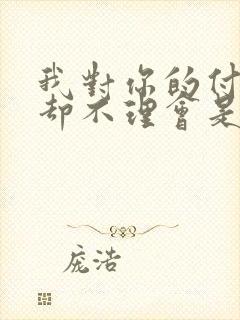 我對你的付
却不理會是
庞浩